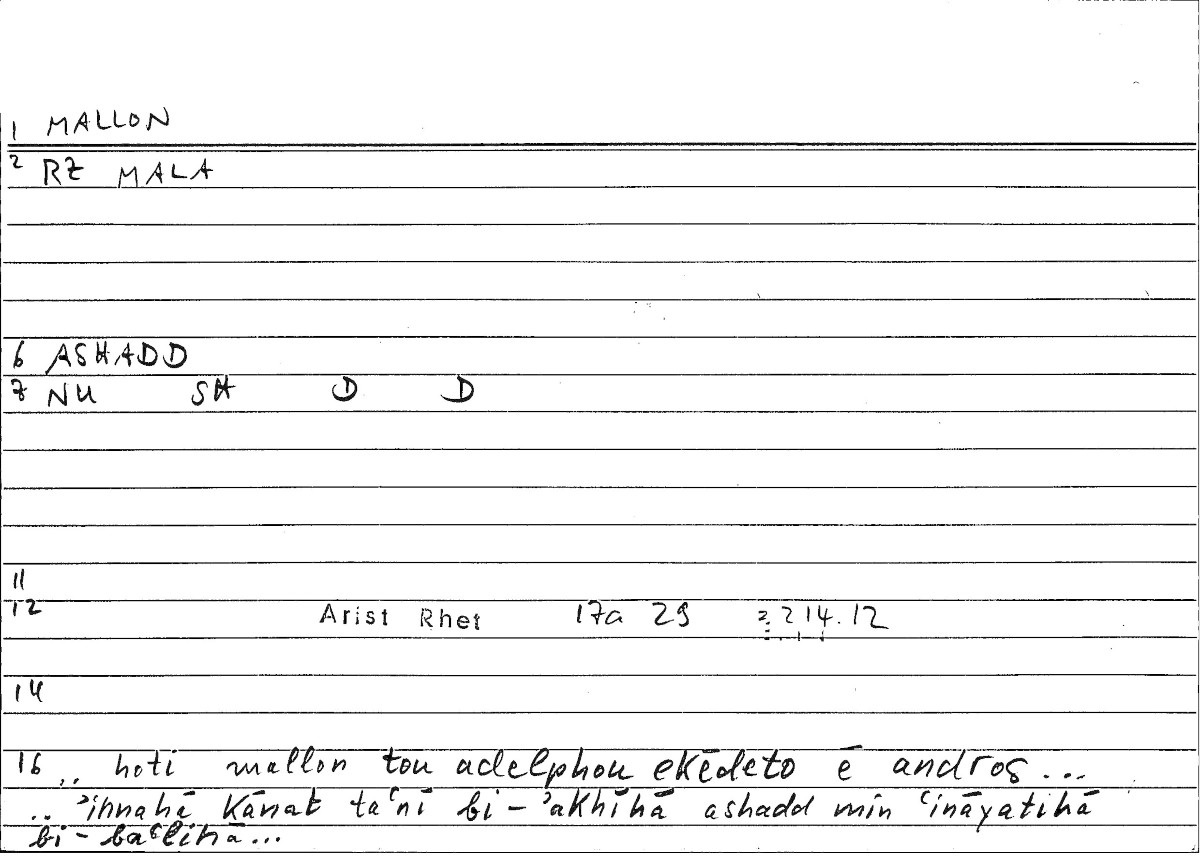 1 MALLON
2 RZ MALA
6 ASHADD
7 NU SH D D
11
12 Arist Rhet 17a 29 214.12
14
16 .. hoti mallon tou adelphou ekēdeto ē andros ...
.. ʾinnahā kānat taʿnī bi-ʾakhīhā ashadd min ʿināyatihā
bi-baʿlihā...